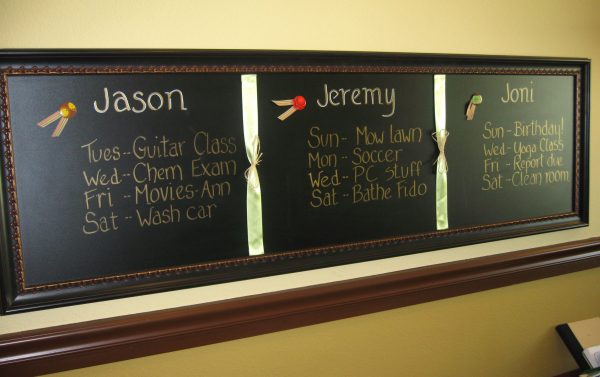 Jason
Tues--Guitar Class
Wed--Chem Exam
Fri--Movies-Ann
Sat--Wash car
Jeremy
Sun--Mow lawn
Mon--Soccer
Wed--PC stuff
Sat--Bathe Fido
Joni
Sun-Birthday!
Wed-Yoga Class
Fri-Report due
Sat-Clean room